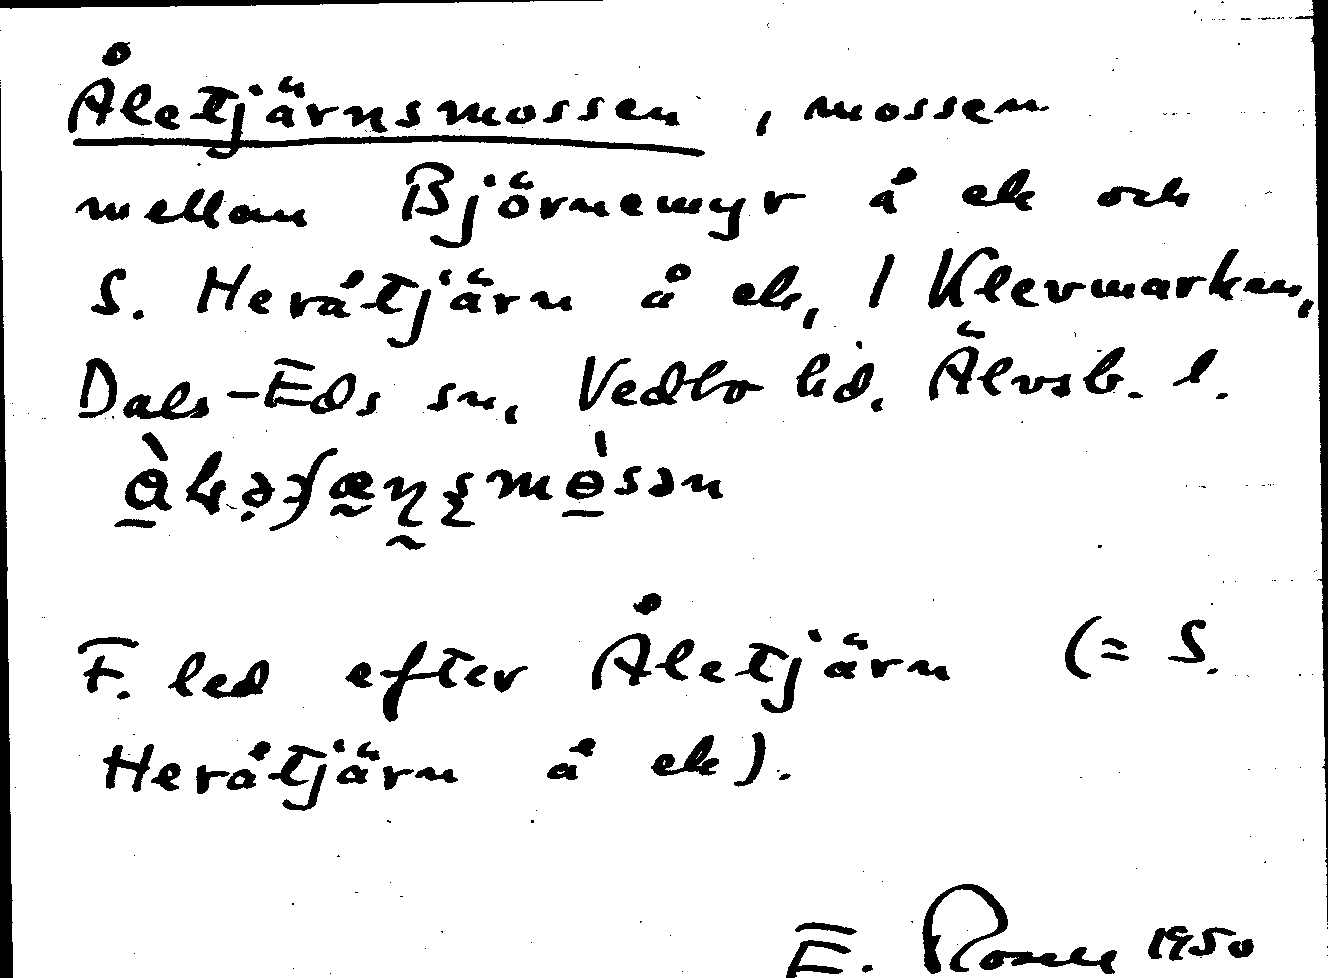 Åletjärnsmossen, mossen
mellan Björnemyr å ek och
S. Heråtjärn å ek, I Klevmarken,
Dals-Eds sn, Vedbo hd. Älvsb. l.
F. led efter Åletjärn (= S.
Heråtjärn å ek).
E. 1950